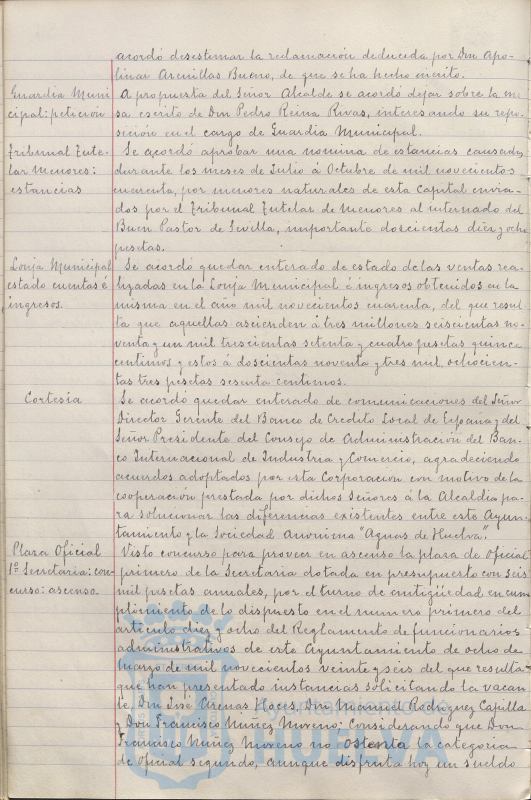 acordó desestimar la reclamación deducida por Don Apo-
linar Arenillas Bueno, de que se ha hecho mérito.
Guardia Muni
cipal: petición
A propuesta del Señor Alcalde se acordó dejar sobre la me
sa escrito de Don Pedro Reina Rivas, interesando su repo-
sición en el cargo de Guardia Municipal.
Tribunal Tute-
lar Menores:
estancias
Se acordó aprobar una nomina de estancias causadas
durante los meses de Julio á Octubre de mil novecientos
cuarenta, por menores naturales de esta Capital envia-
dos por el Tribunal Tutelar de Menores al internado del
Buen Pastor de Sevilla, importante doscientas diez y ocho
pesetas.
Lonja Municipal
estado cuentas é
ingresos.
Se acordó quedar enterado de estado de las ventas rea-
lizadas en la Lonja Municipal é ingresos obtenidos en la
misma en el año mil novecientos cuarenta, del que resul-
ta que aquellas ascienden á tres millones seiscientas no-
venta y un mil trescientas setenta y cuatro pesetas quince
centimos y estos á doscientas noventa y tres mil ochocien-
tas tres pesetas sesenta centimos.
Cortesia
Se acordó quedar enterado de comunicaciones del Señor
Director Gerente del Banco de Credito Local de España y del
Señor Presidente del Consejo de Administración del Ban-
co Internacional de Industria y Comercio, agradeciendo
acuerdos adoptados por esta Corporacion con motivo de la
cooperación prestada por dichos Señores á la Alcaldia pa-
ra solucionar las diferencias existentes entre este Ayun-
tamiento y la Sociedad Anonima "Aguas de Huelva".
Plaza Oficial
1º Secretaria: con-
curso: ascenso
Visto concurso para proveer en ascenso la plaza de Oficial
primero de la Secretaria dotada en presupuesto con seis
mil pesetas anuales, por el turno de antigüedad en cum
plimiento de lo dispuesto en el numero primero del
articulo diez y ocho del Reglamento de funcionarios
administrativos de este Ayuntamiento de ocho de
Marzo de mil novecientos veinte y seis del que resulta
que han presentado instancias solicitando la vacan-
te, Don José Arenas Hoces, Don Manuel Rodriguez Capilla
y Don Francisco Nuñez Moreno: Considerando que Don
Francisco Nuñez Moreno no ostenta la categoria
de oficial segundo, aunque disfruta hoy un sueldo